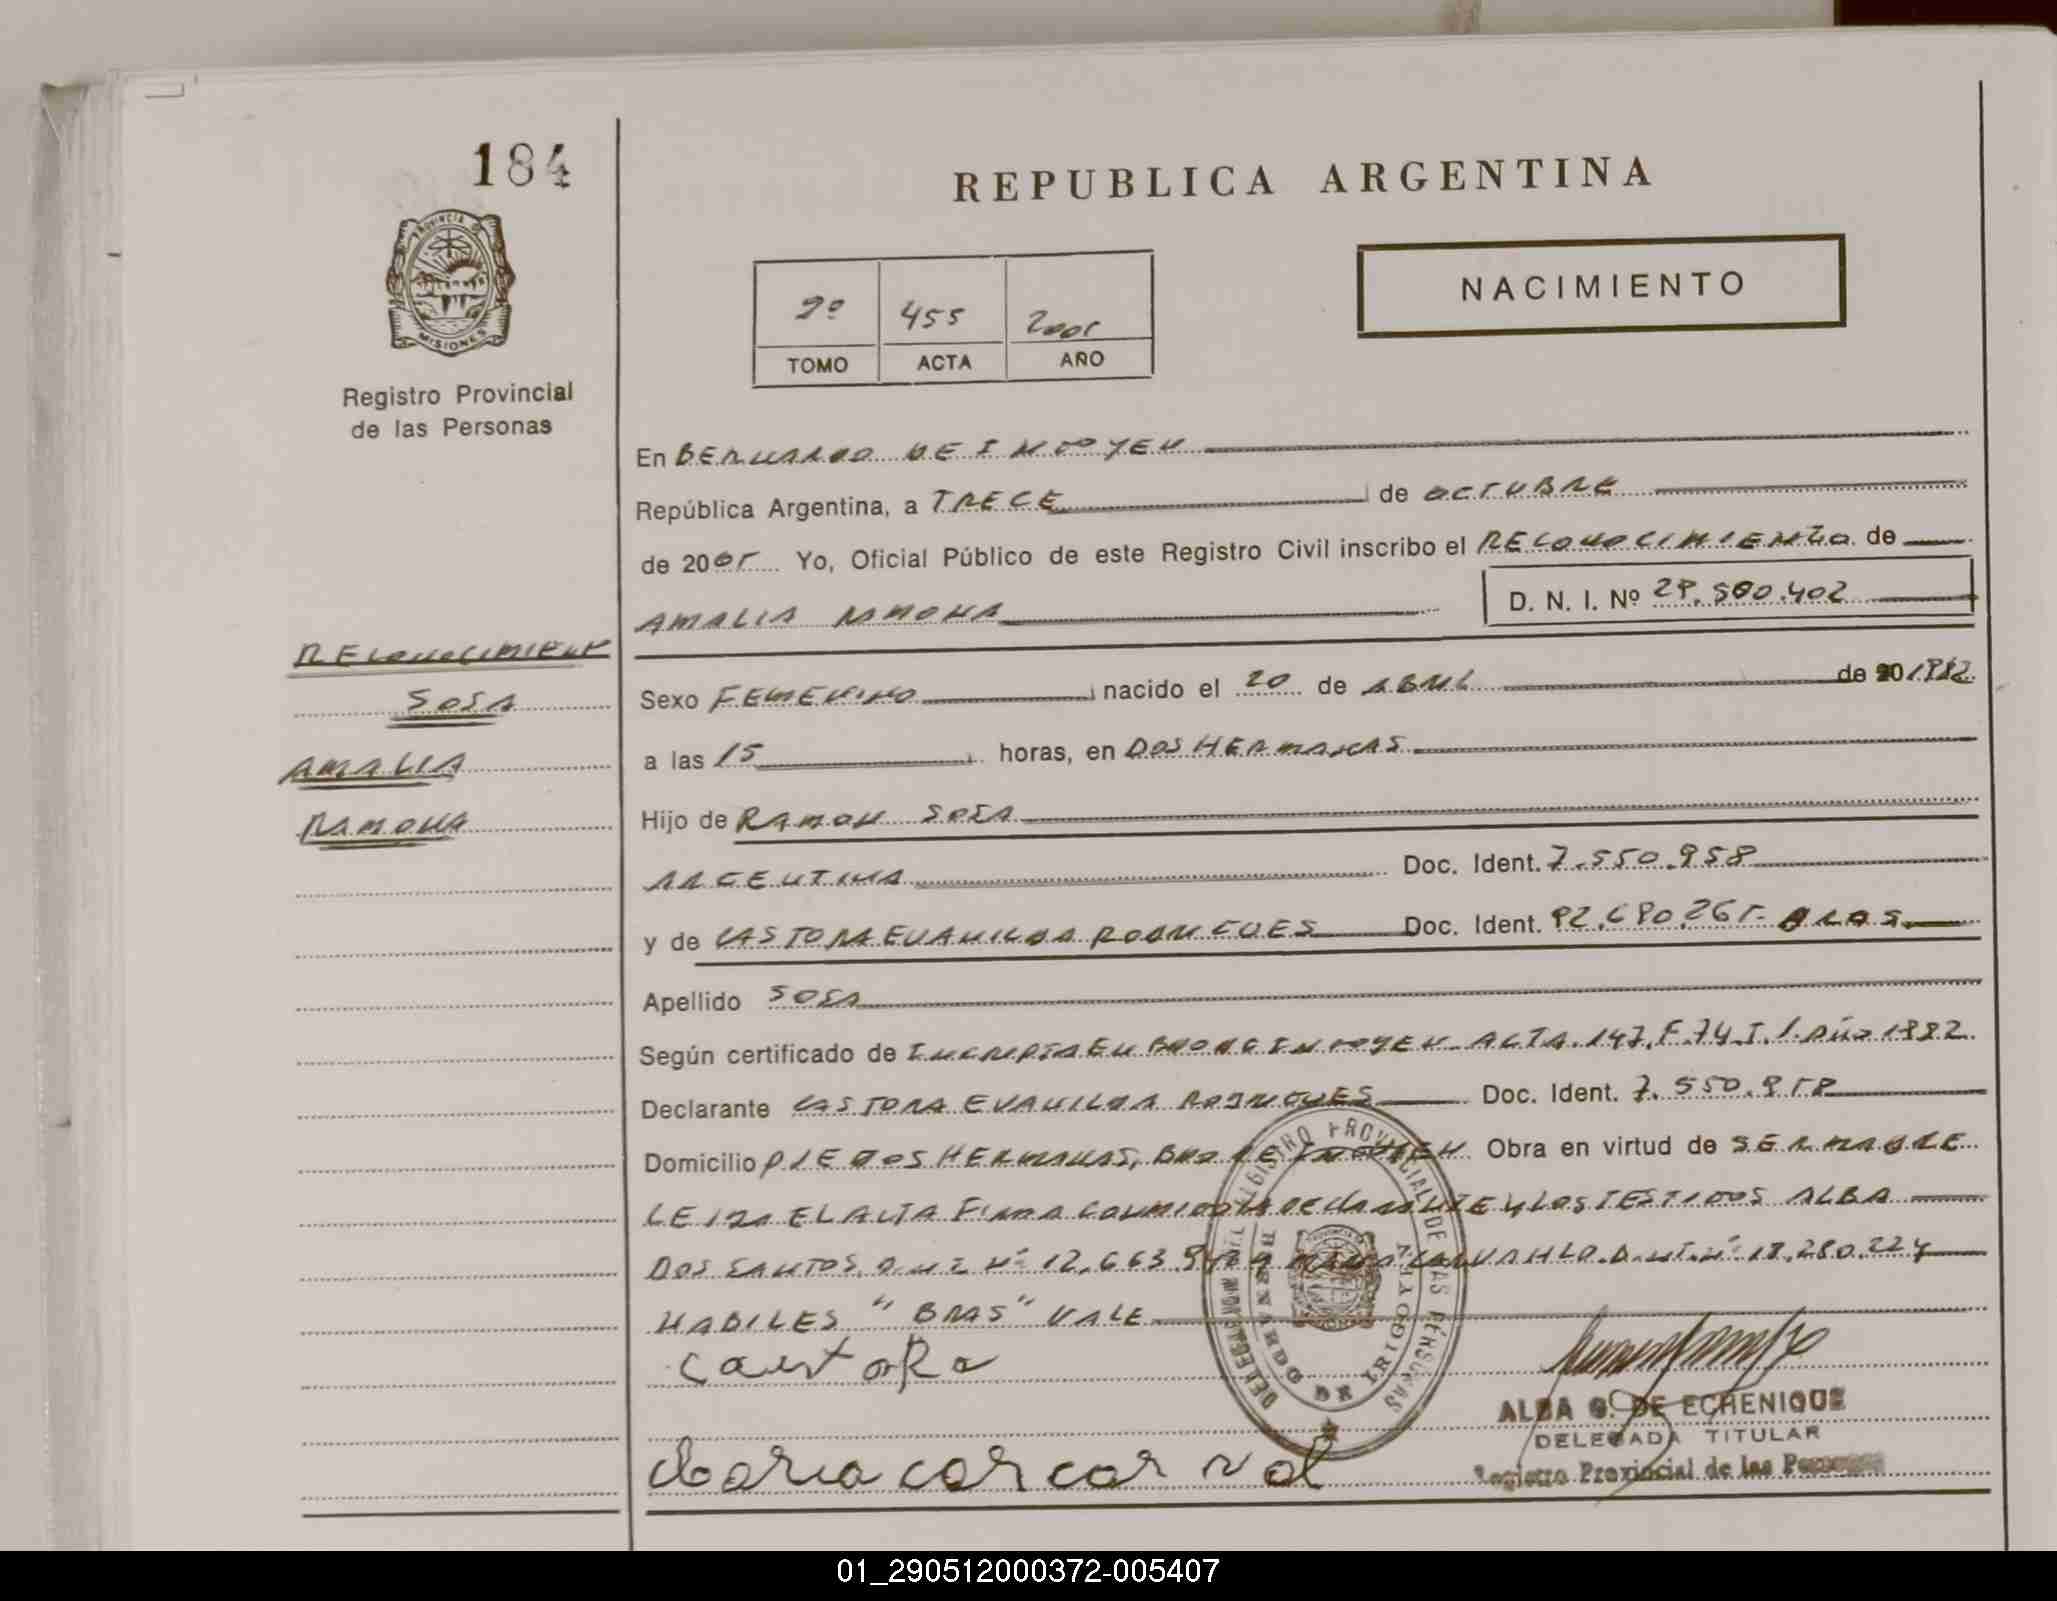 184
REPUBLICA ARGENTINA
NACIMIENTO
PROVINCIA DE
MISIONES
2º 455 2005
TOMO ACTA AÑO
Registro Provincial
de las Personas
En BERNARDO DE IRIGOYEN
República Argentina, a TRECE de OCTUBRE
de 2005 Yo, Oficial Público de este Registro Civil inscribo el RECONOCIMIENTO de
AMALIA RAMONA D. N. I. Nº 29.500.402
RECONOCIMIENT
SOSA
AMALIA
RAMONA
Sexo FEMENINO nacido el 20 de ABRIL de 1982
a las 15 horas, en DOS HERMANAS
Hijo de RAMON SOSA
ARGENTINA Doc. Ident. 7.550.958
y de CASTORA EVANILDA RODRIGUES Doc. Ident. 92.690.265
Apellido SOSA
Según certificado de INCRIPTA EN BRDO DE IRIGOYEN ACTA 147. F. 74. T. 1. AÑO 1982.
Declarante CASTORA EVANILDA RODRIGUES Doc. Ident. 7.550.958
Domicilio PJE DOS HERMANAS, BRDO DE IRIGOYEN Obra en virtud de SER MADRE
LEIDA EL ACTA FIRMA CONMIGO LA DECLARANTE Y LOS TESTIGOS ALBA
DOS SANTOS D.N.I. Nº 12.663. CARVAHLO D.N.I. Nº 18.280.224
HABILES "BRAS" VALE
castoRa
REGISTRO PROVINCIAL DE LAS PERSONAS
BERNARDO DE IRIGOYEN
ALBA G. DE ECHENIQUE
DELEGADA TITULAR
Registro Provincial de las Personas
01_290512000372-005407